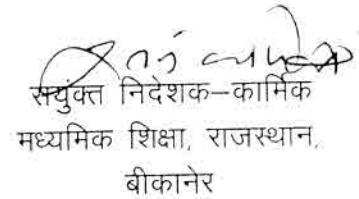 सयुंक्त निदेशक–कार्मिक
मध्यमिक शिक्षा, राजस्थान,
बीकानेर